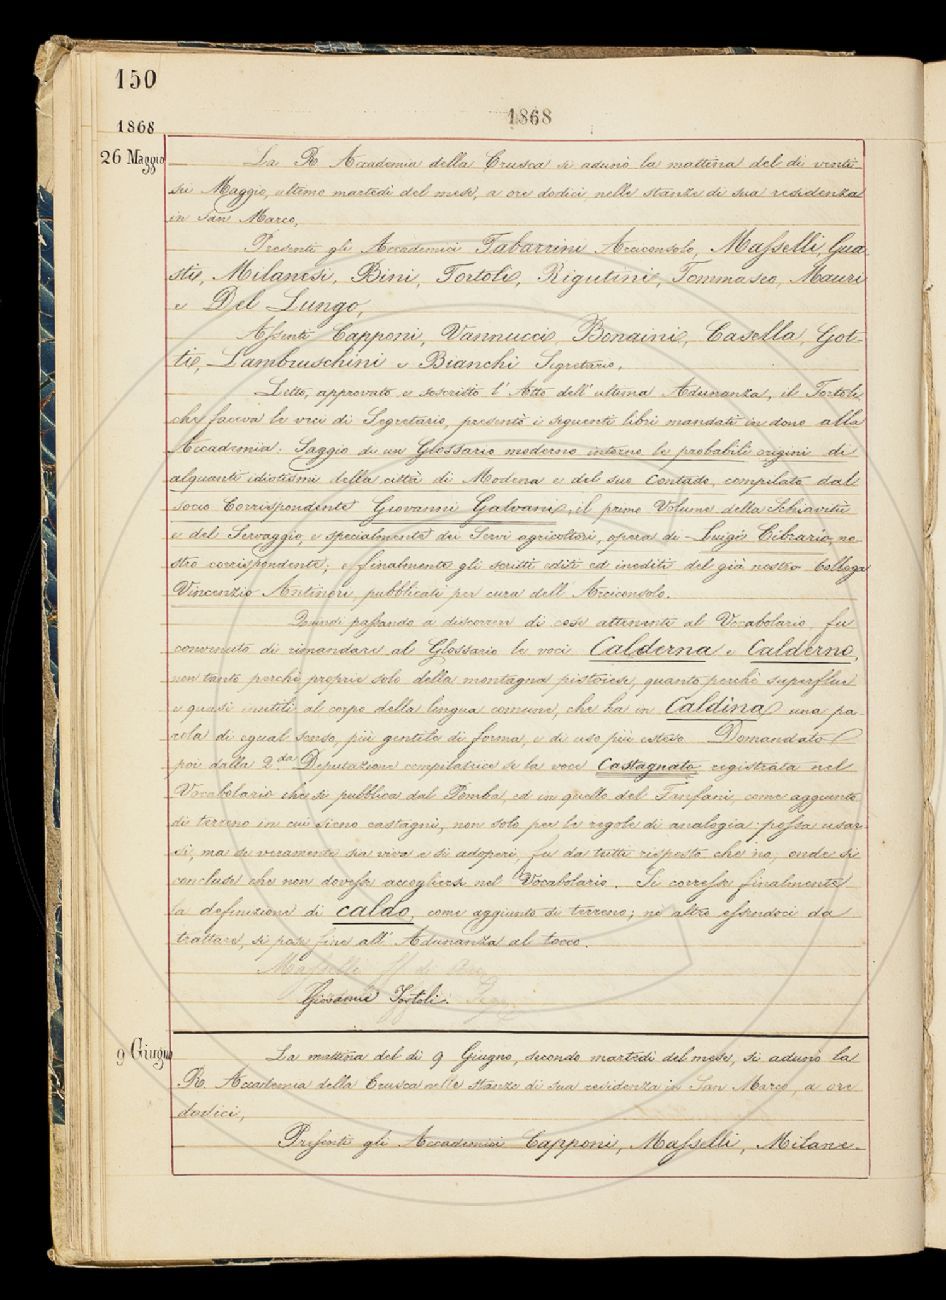 150
1868
1868
26 Maggio
La R. Accademia della Crusca si adunò la mattina del dì venti-
sei Maggio, ultimo martedì del mese, a ore dodici nelle stanze di sua residenza
in San Marco.
Presenti gli Accademici Tabarrini Arciconsolo, Masselli, Gua-
sti, Milanesi, Bini, Tortoli, Rigutini, Tommaseo, Mauri
e Del Lungo.
Assenti Capponi, Vannucci, Bonaini, Casella, Got-
ti, Lambruschini e Bianchi Segretario.
Letto, approvato e soscritto l'Atto dell'ultima Adunanza, il Tortoli,
che faceva le veci di Segretario, presentò i seguenti libri mandati in dono alla
Accademia: Saggio di un Glossario moderno intorno le probabili origini di
alquanti idiotismi della città di Modena e del suo Contado, compilato dal
socio Corrispondente Giovanni Galvani; il primo Volume della Schiavitù
e del Servaggio, e specialmente dei Servi agricoltori, opera di Luigi Cibrario, no-
stro corrispondente; e finalmente gli scritti editi ed inediti del già nostro Collega
Vincenzio Antinori, pubblicati per cura dell'Arciconsolo.
Quindi passando a discorrere di cose attenenti al Vocabolario, fu
convenuto di rimandare al Glossario le voci Calderna e Calderno,
non tanto perchè proprie solo della montagna pistoiese, quanto perchè superflue
e quasi inutili al corpo della lingua comune, che ha in Caldina una pa-
rola di egual senso, più gentile di forma, e di uso più esteso. Domandato
poi dalla 2.da Deputazione compilatrice se la voce Castagnato registrata nel
Vocabolario che si pubblica dal Pomba, ed in quello del Fanfani, come aggiunto
di terreno in cui sieno castagni, non solo per le regole di analogia possa usar-
si, ma se veramente sia viva e si adoperi, fu da tutti risposto che no; onde si
concluse che non dovesse accogliersi nel Vocabolario. Si corresse finalmente
la definizione di caldo, come aggiunto di terreno; nè altro essendoci da
trattare, si pose fine all'Adunanza al tocco.
Masselli ff. di
Giovanni Tortoli.
9 Giugno
La mattina del dì 9 Giugno, secondo martedì del mese, si adunò la
R. Accademia della Crusca nelle stanze di sua residenza in San Marco, a ore
dodici,
Presenti gli Accademici Capponi, Masselli, Milane-